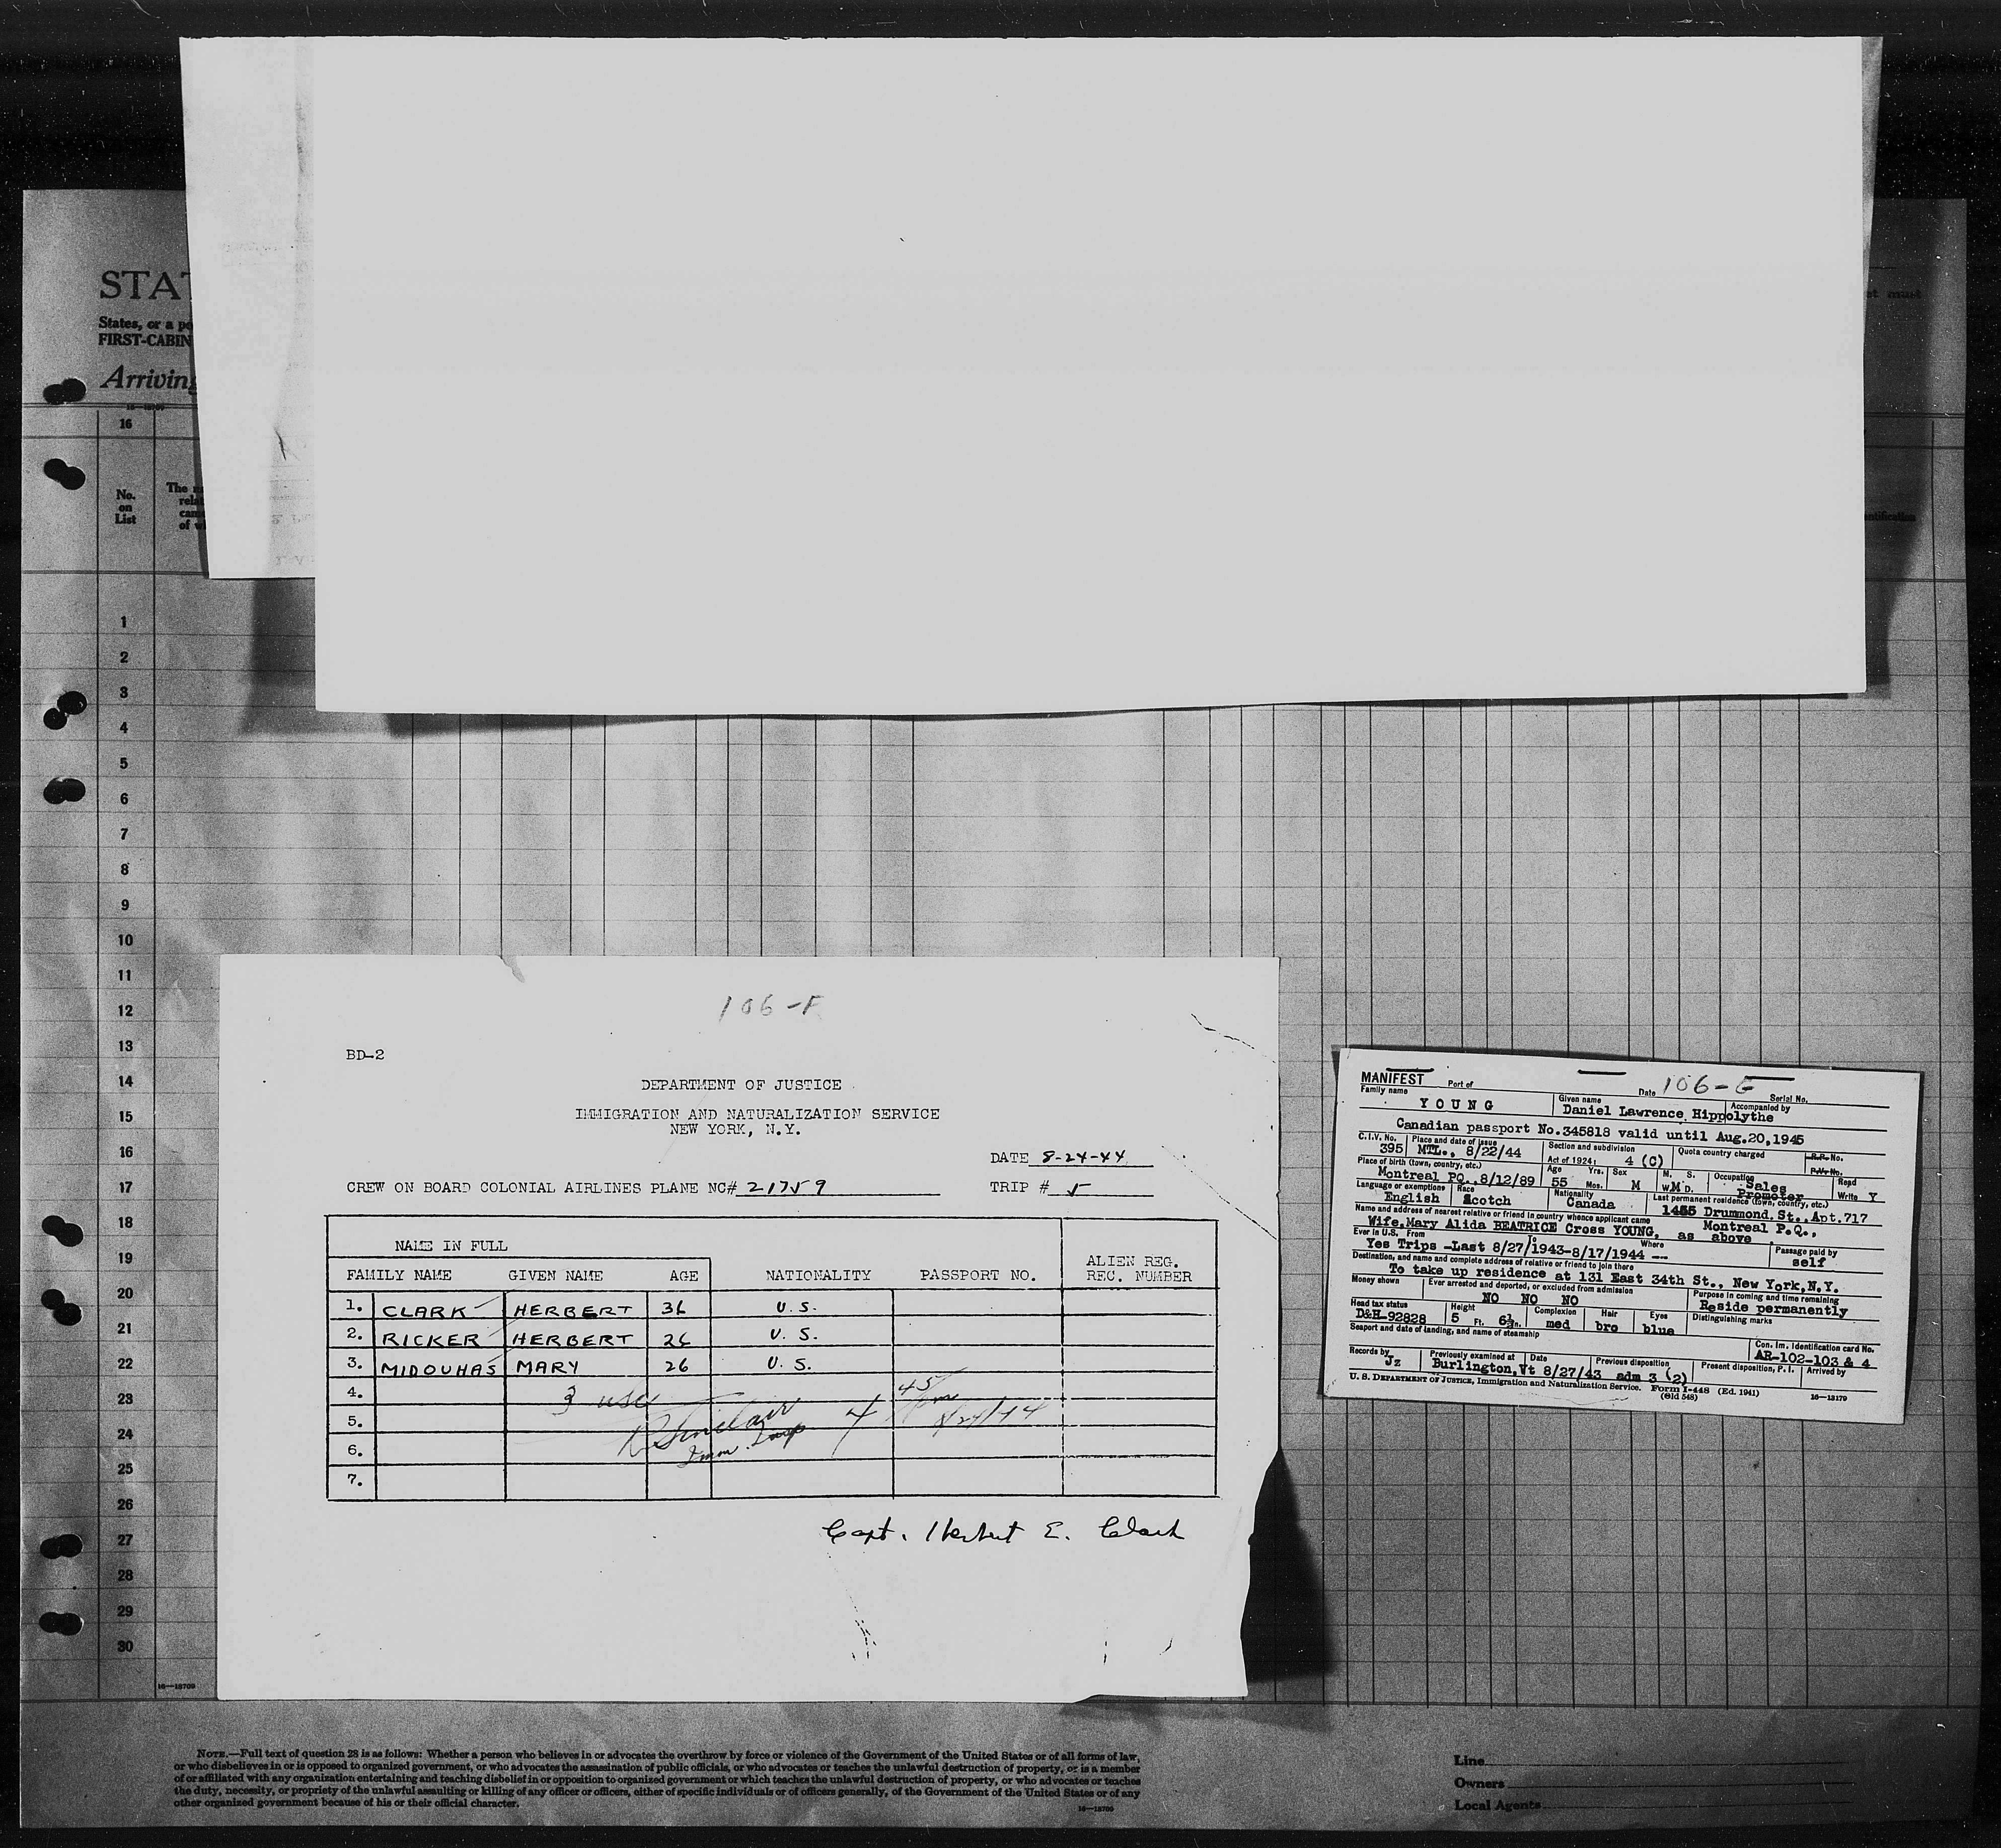 STAT
States, or a po
FIRST-CABIN
Arriving
16
No.
on
List
The
rela
came
of w
et must
entification
1
2
3
4
5
6
7
8
9
10
11
12
13
14
15
16
17
18
19
20
21
22
23
24
25
26
27
28
29
30
16—18709
106-F
BD-2
DEPARTMENT OF JUSTICE
IMMIGRATION AND NATURALIZATION SERVICE
NEW YORK, N.Y.
DATE 8-24-44
CREW ON BOARD COLONIAL AIRLINES PLANE NC# 21759 TRIP # 5
NAME IN FULL
FAMILY NAME GIVEN NAME AGE NATIONALITY PASSPORT NO. ALIEN REG. REC. NUMBER
1. CLARK HERBERT 36 U.S.
2. RICKER HERBERT 26 U.S.
3. MIDOUHAS MARY 26 U.S.
4. 3 usc
5. R Sinclair 8/24/44
6. Imm. Insp
7.
Capt. Herbert E. Clark
MANIFEST Port of Date 106-E Serial No.
Family name YOUNG Given name Daniel Lawrence Hippolythe Accompanied by
Canadian passport No.345818 valid until Aug.20,1945
C.I.V. No. 395 Place and date of issue MTL., 8/22/44 Section and subdivision Act of 1924: 4 (C) Quota country charged R.P. No. P.V. No.
Place of birth (town, country, etc.) Montreal PQ..8/12/89 Age 55 Yrs. Mos. Sex M M. S. W. D. M Occupation Sales Promoter Read Write Y
Language or exemptions English Race Scotch Nationality Canada Last permanent residence (town, country, etc.) 1455 Drummond.St..Apt.717
Name and address of nearest relative or friend in country whence applicant came Montreal P.Q.,
Wife,Mary Alida BEATRICE Cross YOUNG, as above
Ever in U.S. From To Where Passage paid by
Yes Trips -Last 8/27/1943-8/17/1944 -- self
Destination, and name and complete address of relative or friend to join there
To take up residence at 131 East 34th St., New York,N.Y.
Money shown Ever arrested and deported, or excluded from admission NO NO NO Purpose in coming and time remaining Reside permanently
Head tax status D&H-92828 Height 5 Ft. 6½ In. Complexion med Hair bro Eyes blue Distinguishing marks
Seaport and date of landing, and name of steamship Con. Im. Identification card No. AR-102-103 & 4
Records by Jz Previously examined at Burlington,Vt Date 8/27/43 Previous disposition adm 3 (2) Present disposition, P. I. Arrived by
U. S. DEPARTMENT OF JUSTICE, Immigration and Naturalization Service. Form I-448 (Ed. 1941)
(Old 548) 16—13179
NOTE.—Full text of question 28 is as follows: Whether a person who believes in or advocates the overthrow by force or violence of the Government of the United States or of all forms of law,
or who disbelieves in or is opposed to organized government, or who advocates the assassination of public officials, or who advocates or teaches the unlawful destruction of property, or is a member
of or affiliated with any organization entertaining and teaching disbelief in or opposition to organized government or which teaches the unlawful destruction of property, or who advocates or teaches
the duty, necessity, or propriety of the unlawful assaulting or killing of any officer or officers, either of specific individuals or of officers generally, of the Government of the United States or of any
other organized government because of his or their official character.
16—18709
Line
Owners
Local Agents